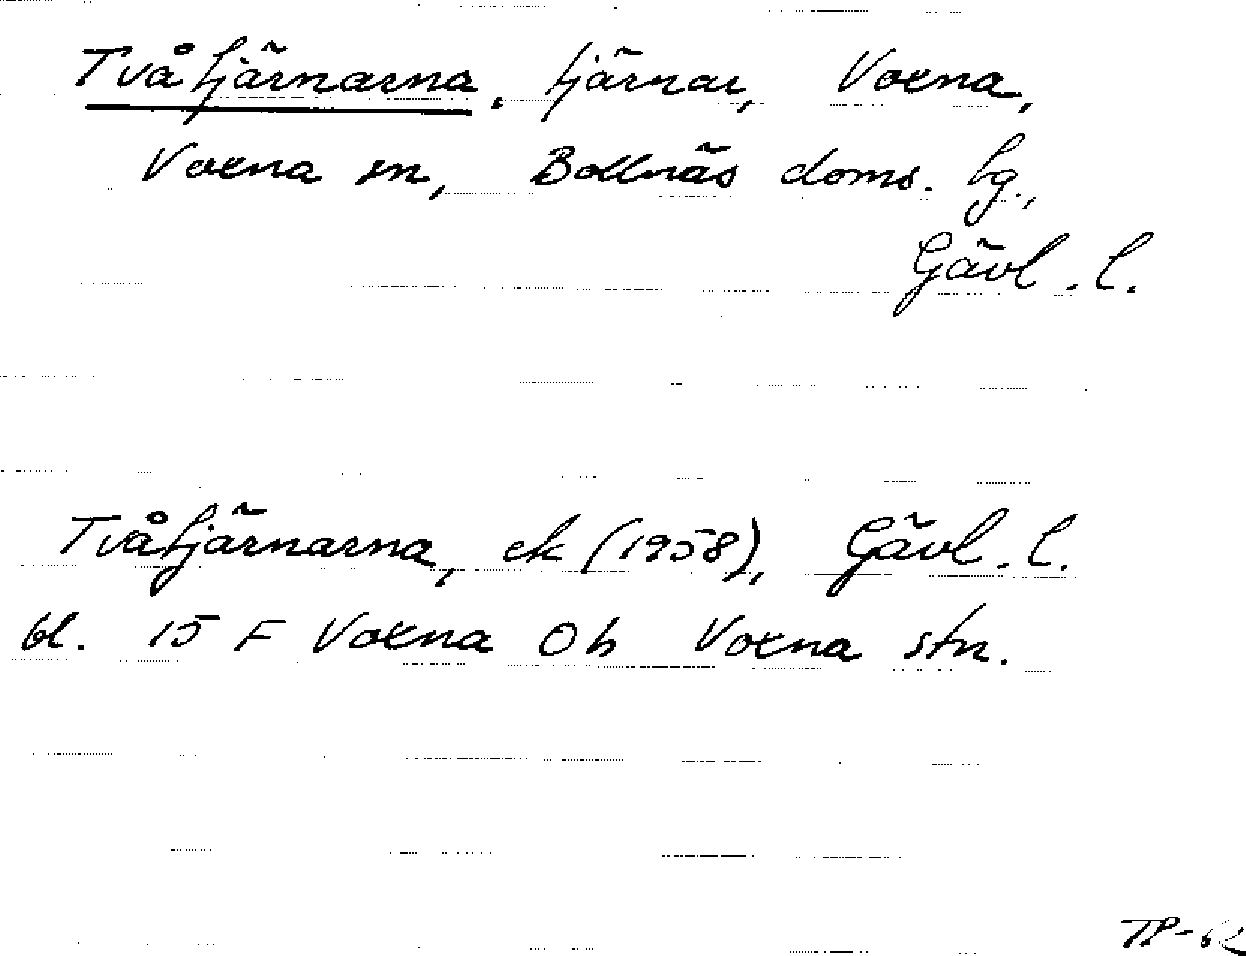 Tvåtjärnarna, tjärnar, Voxna,
Voxna sn, Bollnäs doms. tg.,
Gävl. l.
Tvåtjärnarna, ek (1958), Gävl. l.
bl. 15 F Voxna 0 h Voxna stn.
TP-62